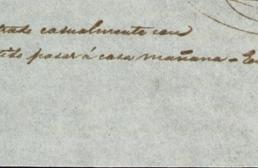 trado casualmente con
tido pasar á casa mañana - En